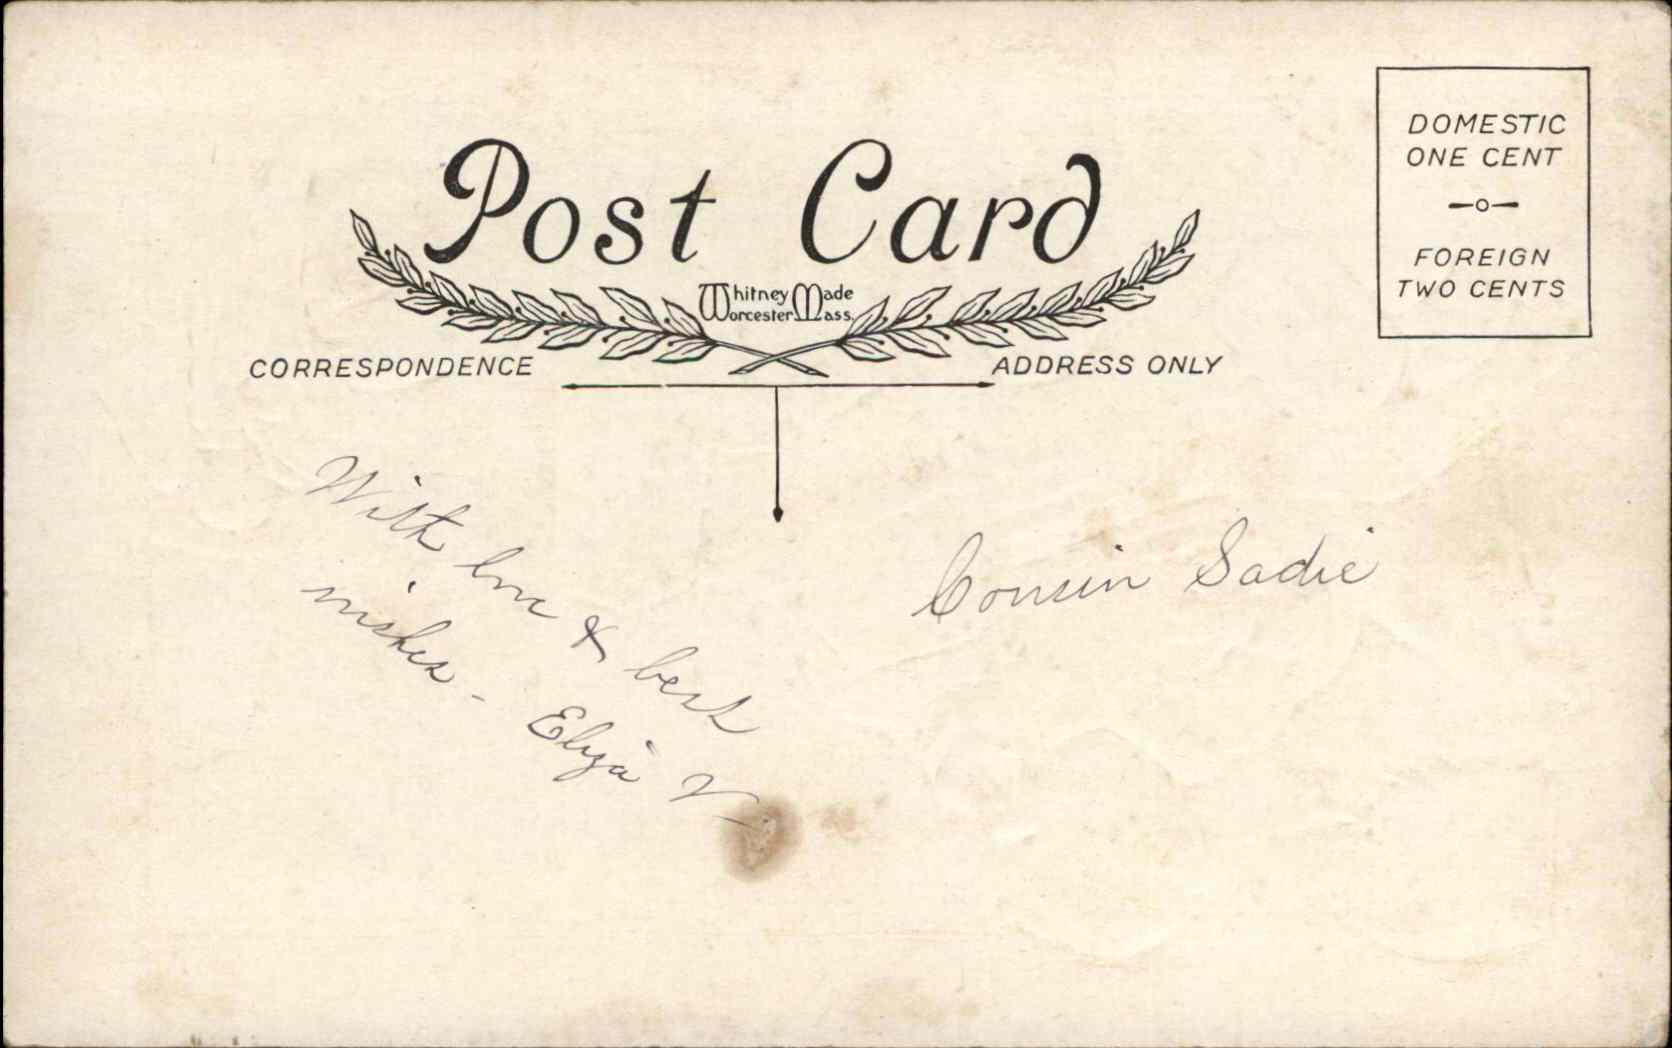 Post Card
Whitney Made
Worcester Mass.
DOMESTIC
ONE CENT
FOREIGN
TWO CENTS
CORRESPONDENCE
ADDRESS ONLY
With love & best
wishes - Eliza V.
Cousin Sadie